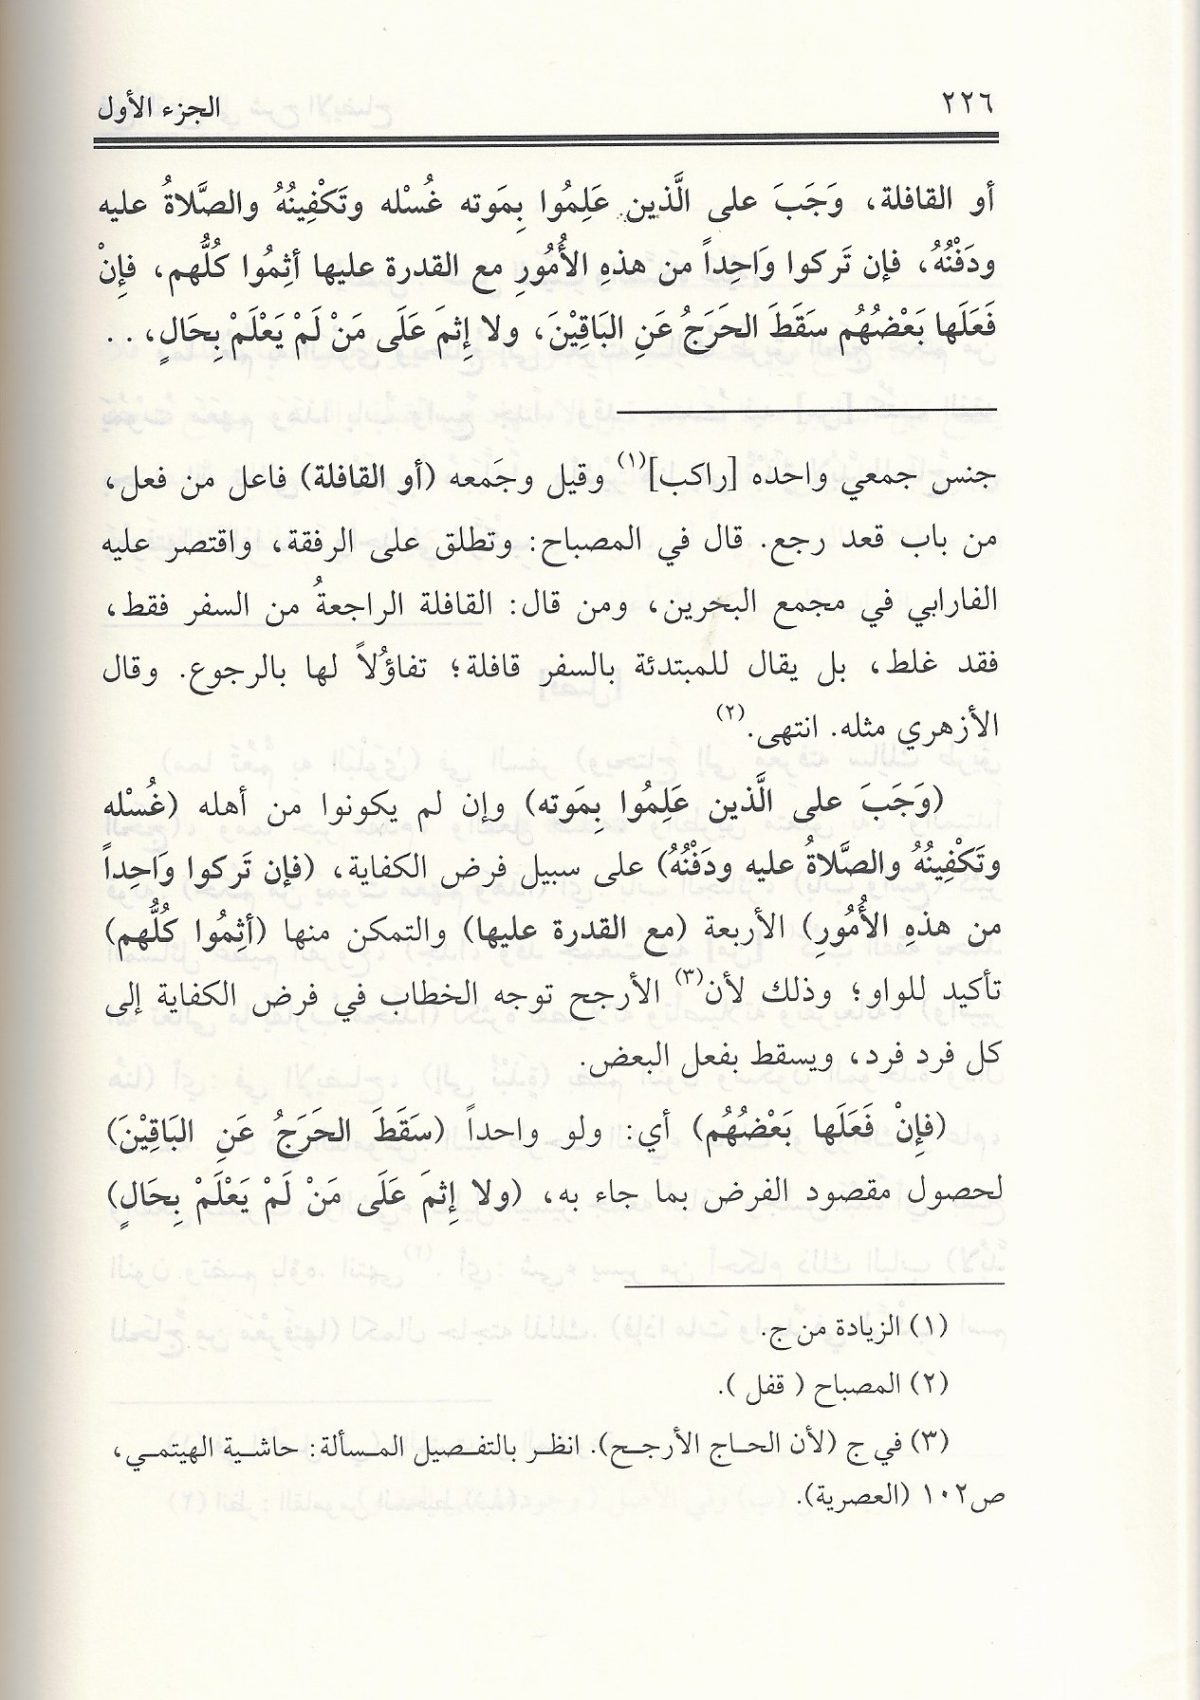 ٢٢٦
الجزء الأول
أو القافلة، وَجَبَ على الَّذين عَلِمُوا بِمَوته غُسْله وتَكْفِينُهُ والصَّلاةُ عليه
ودَفْنُهُ، فإن تَركوا وَاحِداً من هذهِ الأُمُورِ مع القدرة عليها أثِمُوا كُلُّهم، فإِنْ
فَعَلَها بَعْضُهُم سَقَطَ الحَرَجُ عَنِ البَاقِيْنَ، ولا إِثمَ عَلَى مَنْ لَمْ يَعْلَمْ بِحَالٍ، . .
جنس جمعي واحده [راكب](١) وقيل وجَمعه (أو القافلة) فاعل من فعل،
من باب قعد رجع. قال في المصباح: وتطلق على الرفقة، واقتصر عليه
الفارابي في مجمع البحرين، ومن قال: القافلة الراجعةُ من السفر فقط،
فقد غلط، بل يقال للمبتدئة بالسفر قافلة؛ تفاؤُلاً لها بالرجوع. وقال
الأزهري مثله. انتهى.(٢)
(وَجَبَ على الَّذين عَلِمُوا بِمَوته) وإن لم يكونوا من أهله (غُسْله
وتَكْفِينُهُ والصَّلاةُ عليه ودَفْنُهُ) على سبيل فرض الكفاية، (فإن تَركوا وَاحِداً
من هذهِ الأُمُورِ) الأربعة (مع القدرة عليها) والتمكن منها (أثِمُوا كُلُّهم)
تأكيد للواو؛ وذلك لأن(٣) الأرجح توجه الخطاب في فرض الكفاية إلى
كل فرد فرد، ويسقط بفعل البعض.
(فإِنْ فَعَلَها بَعْضُهُم) أي: ولو واحداً (سَقَطَ الحَرَجُ عَنِ البَاقِيْنَ)
لحصول مقصود الفرض بما جاء به، (ولا إِثمَ عَلَى مَنْ لَمْ يَعْلَمْ بِحَالٍ)
(١) الزيادة من ج.
(٢) المصباح ( قفل ).
(٣) في ج (لأن الحاج الأرجح). انظر بالتفصيل المسألة: حاشية الهيتمي،
ص١٠٢ (العصرية).